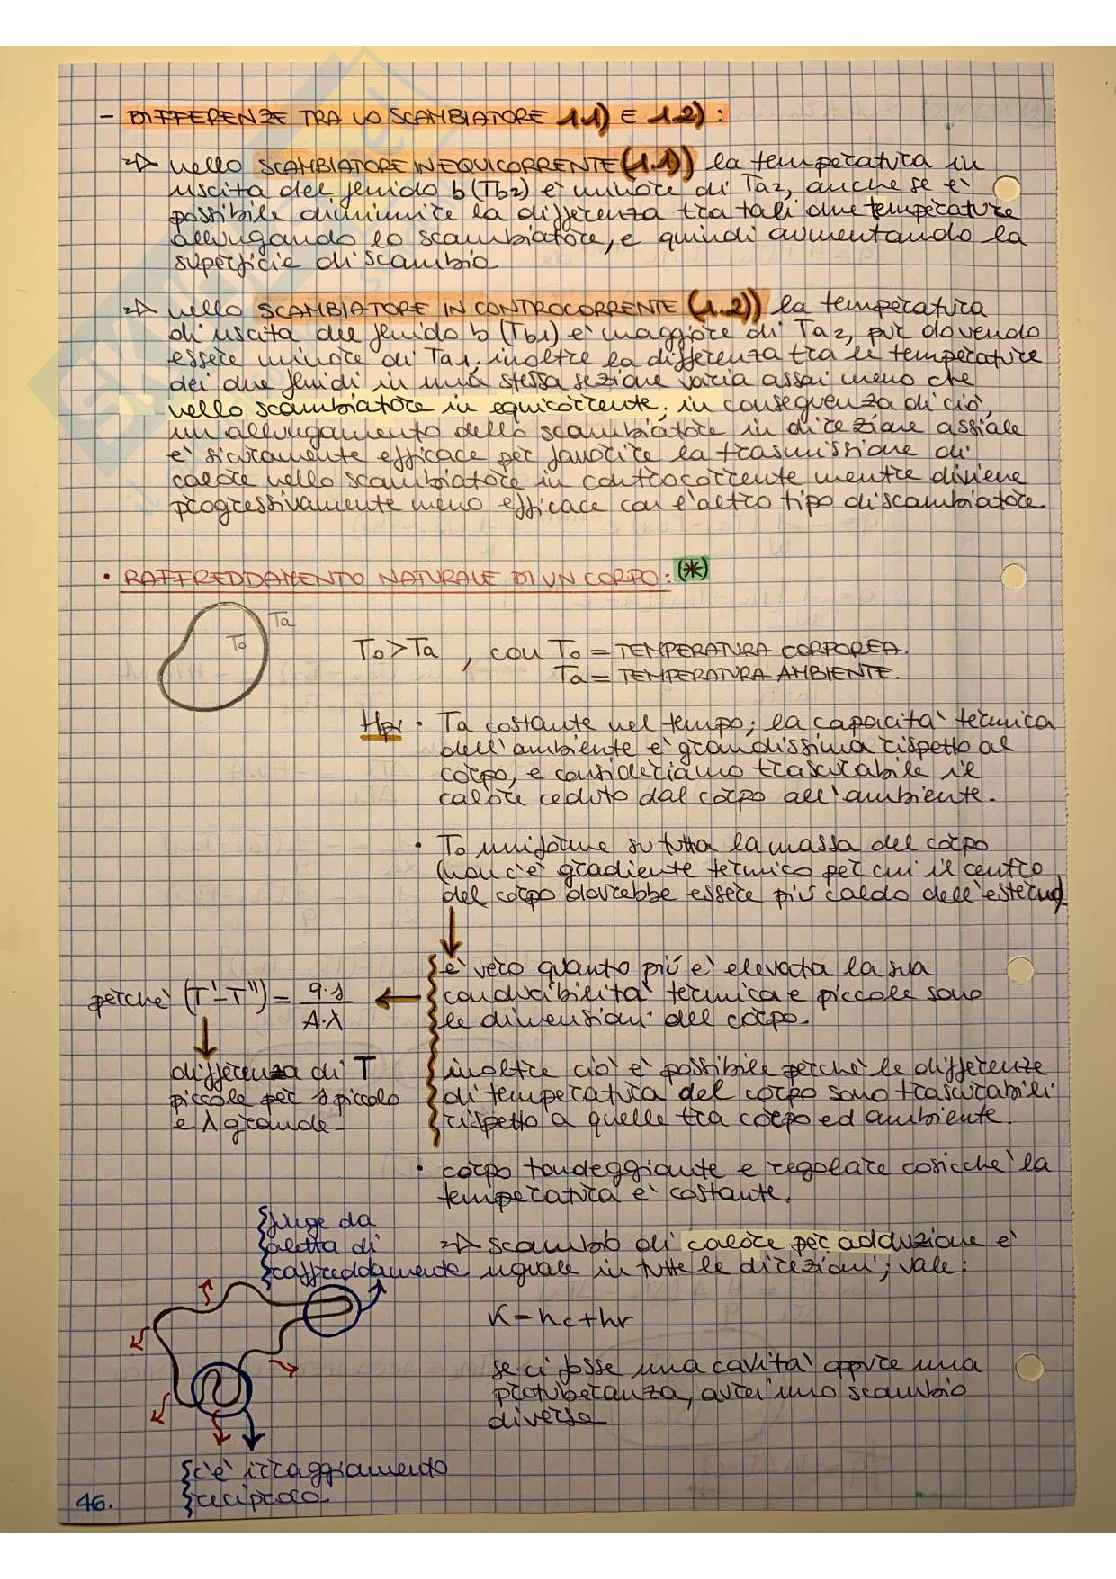 - DIFFERENZE TRA LO SCAMBIATORE 1.1) E 1.2):
⇒ nello SCAMBIATORE IN EQUICORRENTE (1.1)) la temperatura in
uscita del fluido b (Tb2) è minore di Ta2, anche se è
possibile diminuire la differenza tra tali due temperature
allungando lo scambiatore, e quindi aumentando la
superficie di scambio
⇒ nello SCAMBIATORE IN CONTROCORRENTE (1.2)) la temperatura
di uscita del fluido b (Tb1) è maggiore di Ta2, pur dovendo
essere minore di Ta1, inoltre la differenza tra le temperature
dei due fluidi in una stessa sezione varia assai meno che
nello scambiatore in equicorrente. in conseguenza di ciò,
un allungamento dello scambiatore in direzione assiale
è sicuramente efficace per favorire la trasmissione di
calore nello scambiatore in controcorrente mentre diviene
progressivamente meno efficace con l'altro tipo di scambiatore.
• RAFFREDDAMENTO NATURALE DI UN CORPO: (*)
Ta
To
To>Ta , con To = TEMPERATURA CORPOREA.
Ta = TEMPERATURA AMBIENTE.
Hp: • Ta costante nel tempo; la capacità termica
dell'ambiente è grandissima rispetto al
corpo, e consideriamo trascurabile il
calore ceduto dal corpo all'ambiente.
• To uniforme su tutta la massa del corpo
(non c'è gradiente termico per cui il centro
del corpo dovrebbe essere più caldo dell'esterno)
è vero quanto più è elevata la sua
conducibilità termica e piccole sono
le dimensioni del corpo.
perchè (T'-T") = q·s / A·λ
differenza di T
piccole per s piccolo
e λ grande-
inoltre ciò è possibile perchè le differenze
di temperatura del corpo sono trascurabili
rispetto a quelle tra corpo ed ambiente.
• corpo tondeggiante e regolare cosicchè la
temperatura è costante.
funge da
aletta di
raffreddamento
⇒ scambio di calore per adduzione è
uguale in tutte le direzioni; vale:
K = hc+hr
se ci fosse una cavità oppure una
protuberanza, avrei uno scambio
diverso
c'è irraggiamento
reciproco.
46.